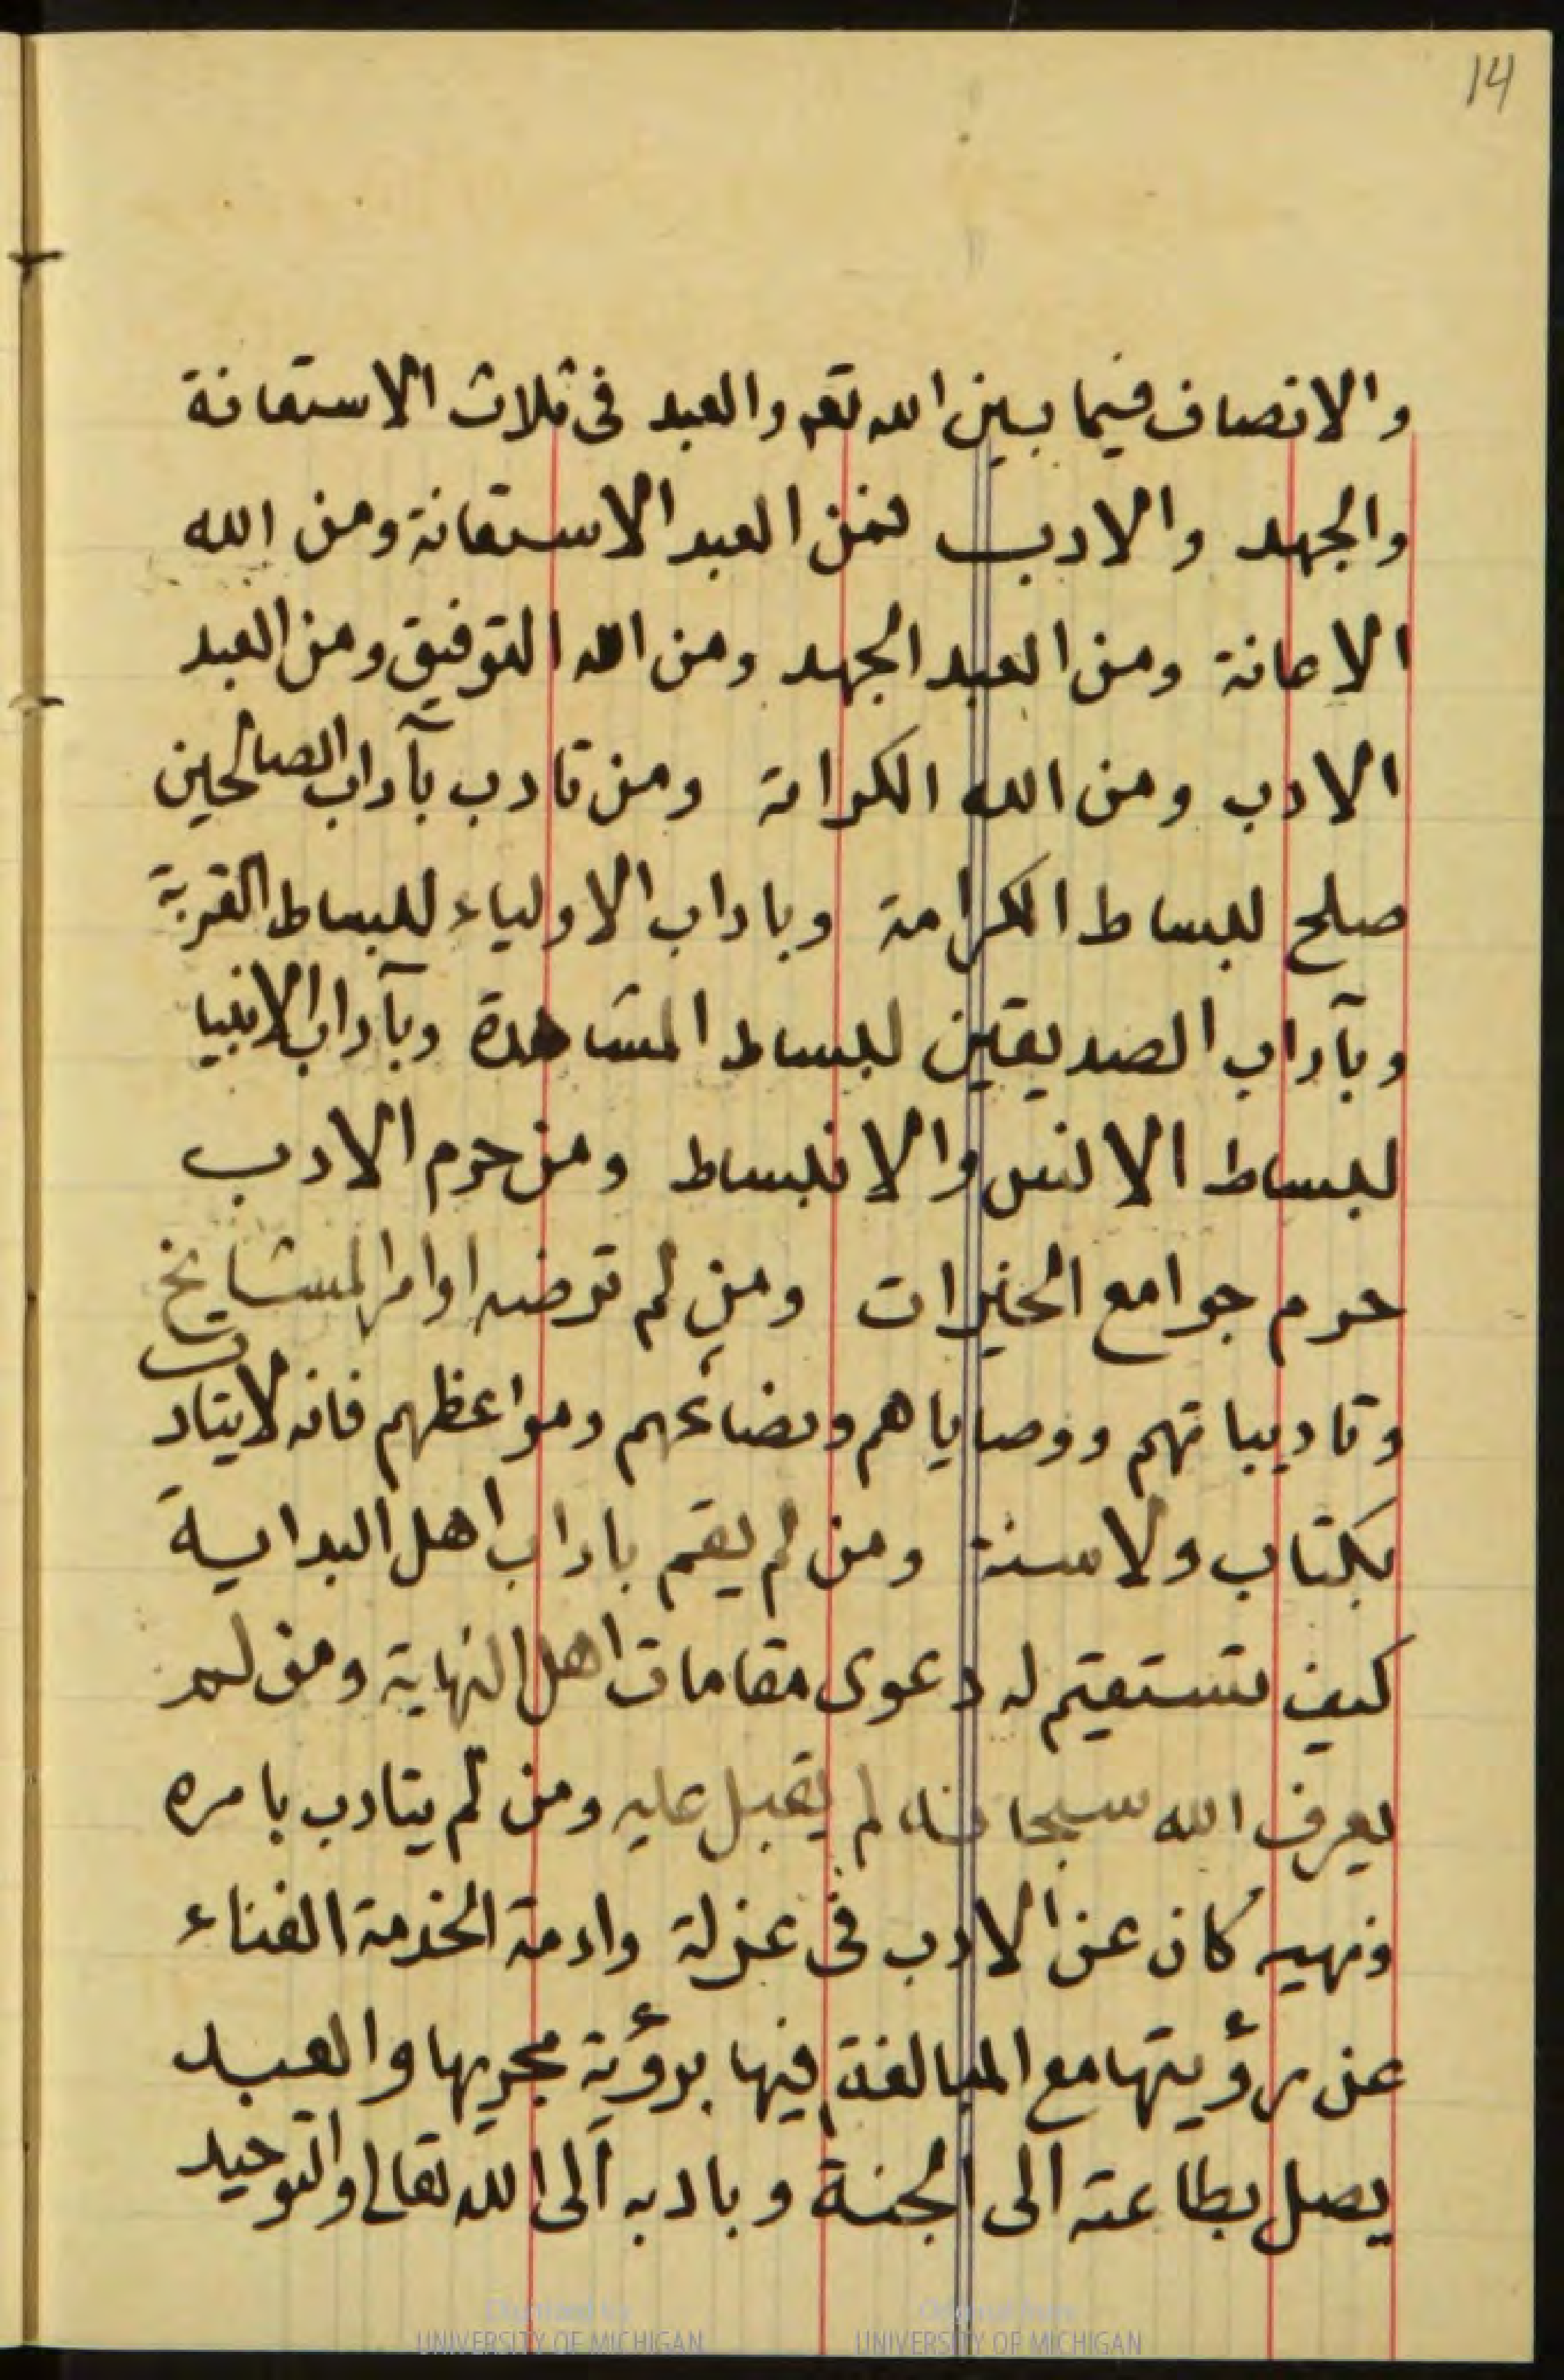 14
والانصاف فيما بين الله تعه والعبد فى ثلاث الاستعانة
والجهد والادب فمن العبد الاستعانة ومن الله
الاعانة ومن العبد الجهد ومن الله التوفيق ومن العبد
الادب ومن الله الكرامة ومن تادب بآداب الصالحين
صلح للبساط الكرامة وباداب الاولياء للبساط القربة
وبآداب الصديقين لبساط المشاهدة وبآداب الانبيا
لبساط الانس والانبساط ومن حرم الادب
حرم جوامع الخيرات ومن لم ترضه اوامر المشايخ
وتاديباتهم ووصاياهم ونصائحهم ومواعظهم فانه لا يتادب
بكتاب ولا سنة ومن لم يقم باداب اهل البداية
كيف تستقيم له دعوى مقامات اهل النهاية ومن لم
يعرف الله سبحانه لم يقبل عليه ومن لم يتادب بامره
ونهيه كان عن الادب فى عزلة وادمة الخدمة الفناء
عن رؤيتها مع المبالغة فيها برؤية مجريها والعبد
يصل بطاعته الى الجنة وبادبه الى الله تعالى والتوحيد
UNIVERSITY OF MICHIGAN
UNIVERSITY OF MICHIGAN